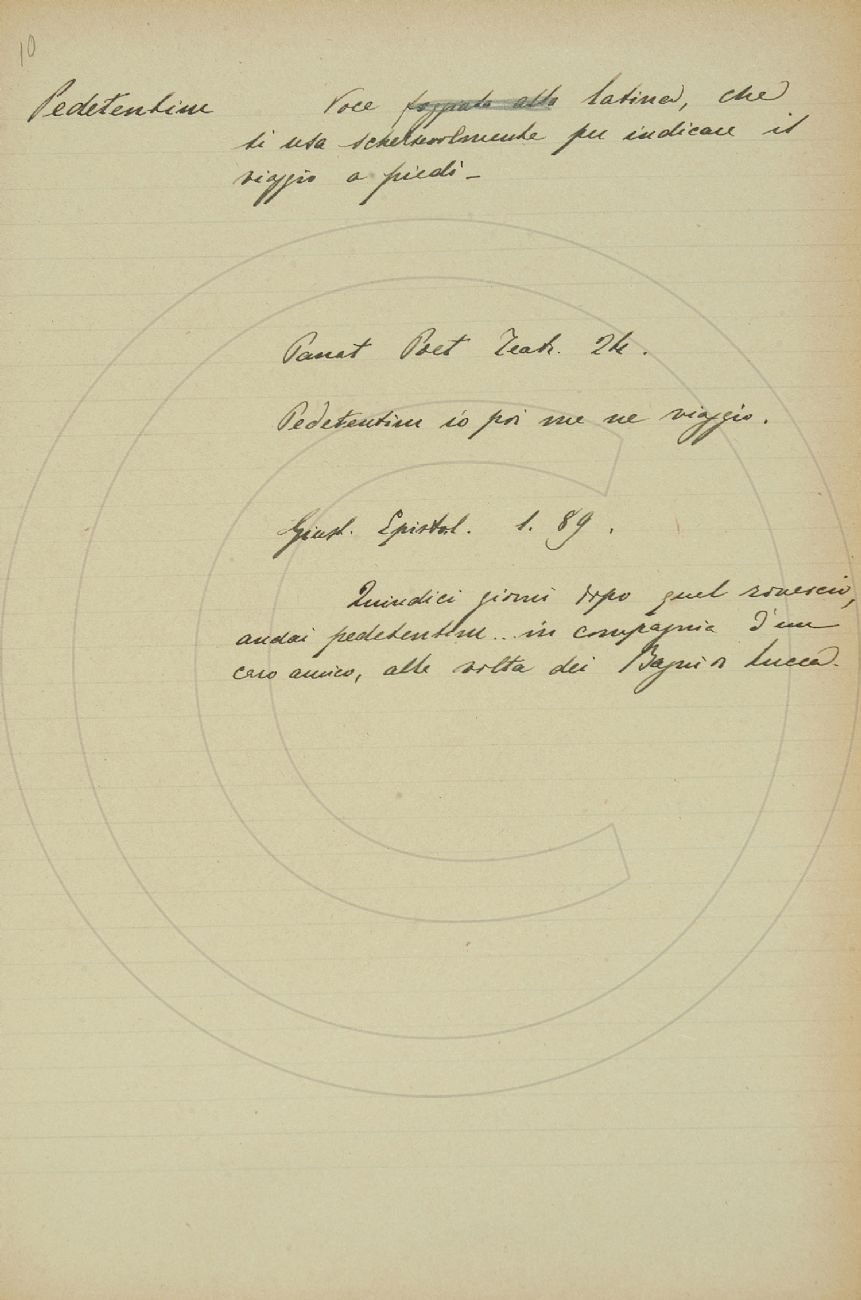 10
Pedetentim Voce foggiata alla latina, che
si usa scherzevolmente per indicare il
viaggio a piedi –
Panat Poet Teatr. 24.
Pedetentim io poi me ne viaggio.
Giust. Epistol. 1. 89.
Quindici giorni dopo quel rovescio,
andai pedetentim... in compagnia d'un
caro amico, alla volta dei Bagni di Lucca.